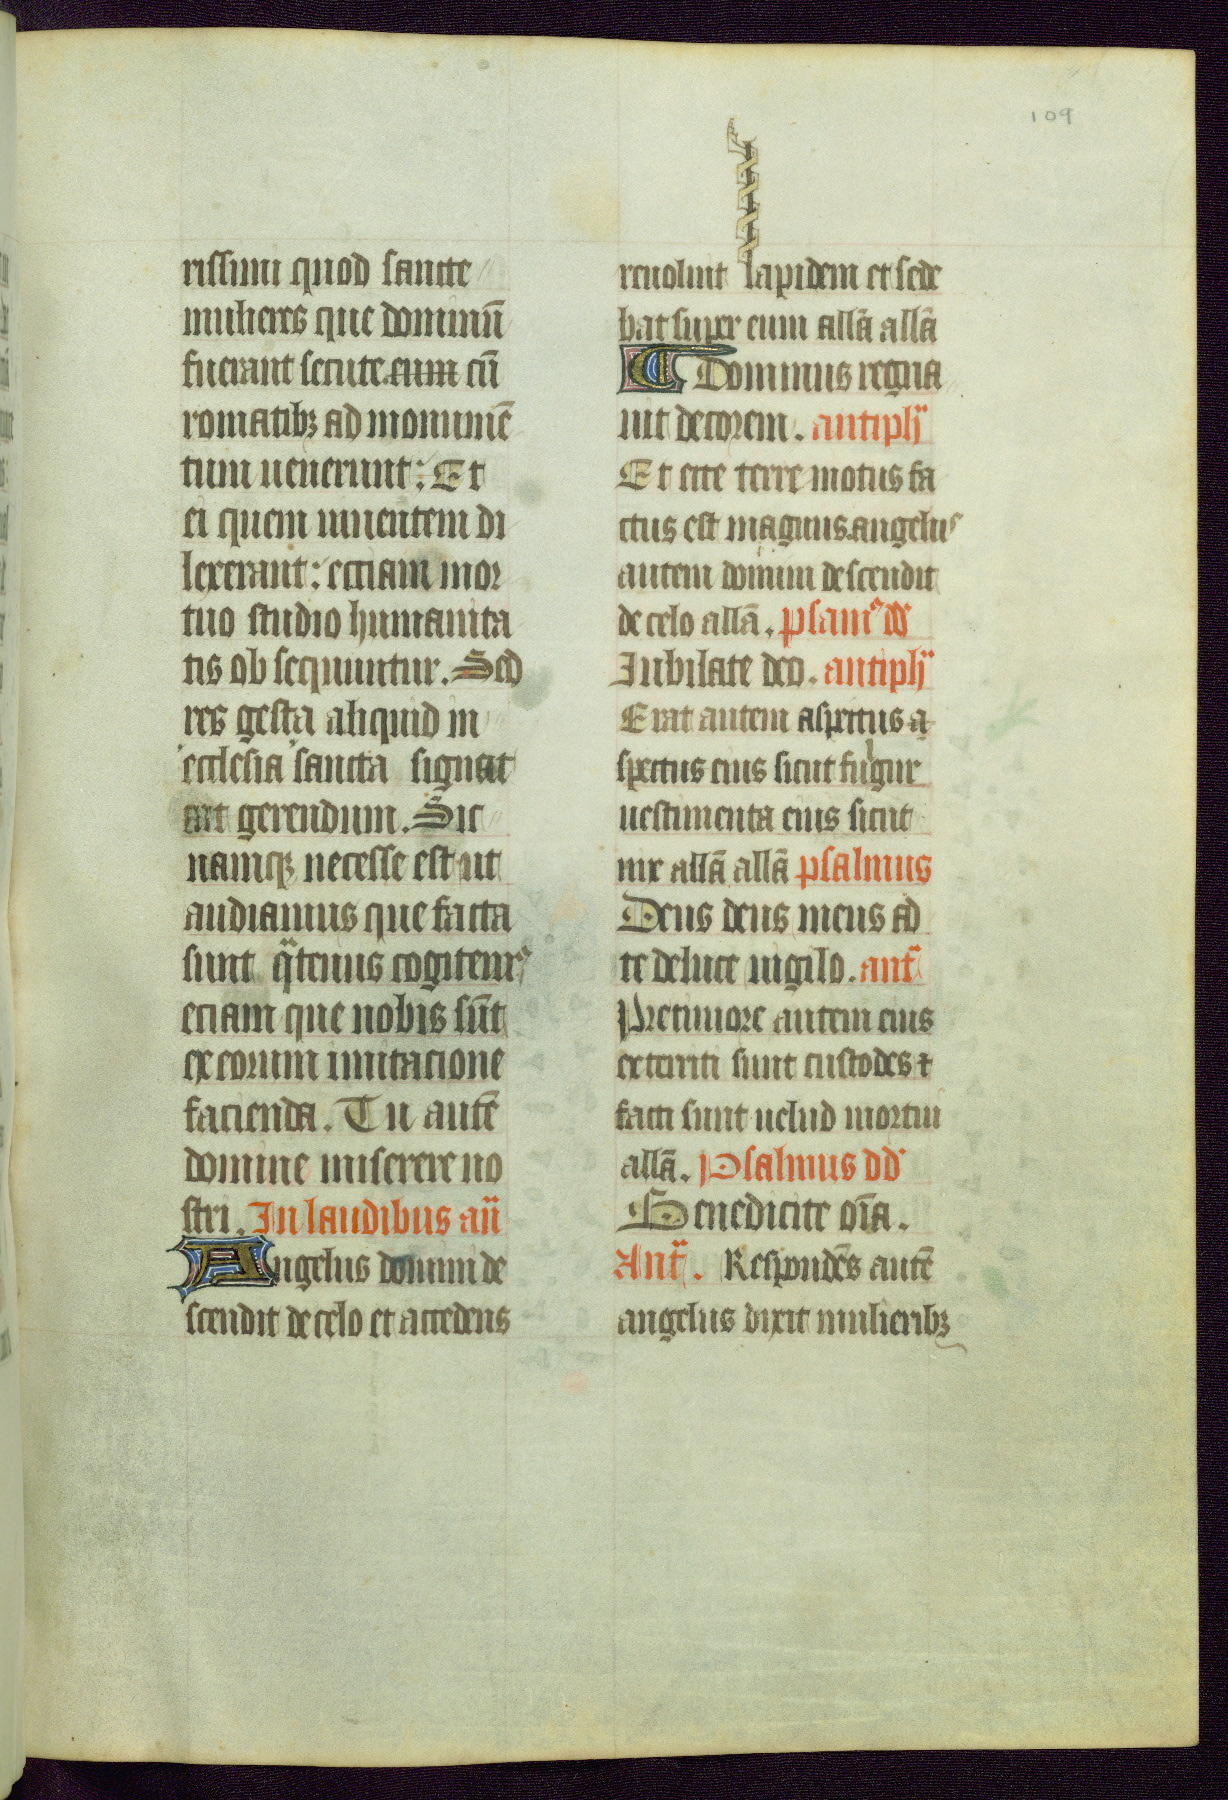 109
rissimi quod sancte
mulieres que dominū
fuerant secute eum cū
romatibꝫ ad monumē
tum uenerunt: Et
ei quem uiuentem di
lexerant: eciam mor
tuo studio humanita
tis ob sequuntur. Sed
res gesta aliquid in
ecclesia sancta signat
gerendum. Sic
namqꝫ necesse est ut
audiamus que facta
sunt qͣtenus cogitemꝰ
eciam que nobis sūt
ex eorum imitacione
facienda. Tu autē
domine miserere no
stri. In laudibus añ
Angelus domini de
scendit de celo et accedens
reuoluit lapidem et sede
bat super eum allā allā
Dominus regna
uit decorem. antiph
Et ecce terre motus fa
ctus est magnus angelus
autem domini descendit
de celo allā. psamꝰ dd
Iubilate deo. antiph
Erat autem aspectus a
spectus eius sicut fulgur
uestimenta eius sicut
nix allā allā psalmus
Deus deus meus ad
te de luce uigilo. ant
Pre timore autem eius
exterriti sunt custodes ⁊
facti sunt uelud mortui
allā. Psalmus dd
Benedicite oīa.
Ant. Respondēs autē
angelus dixit mulieribꝫ